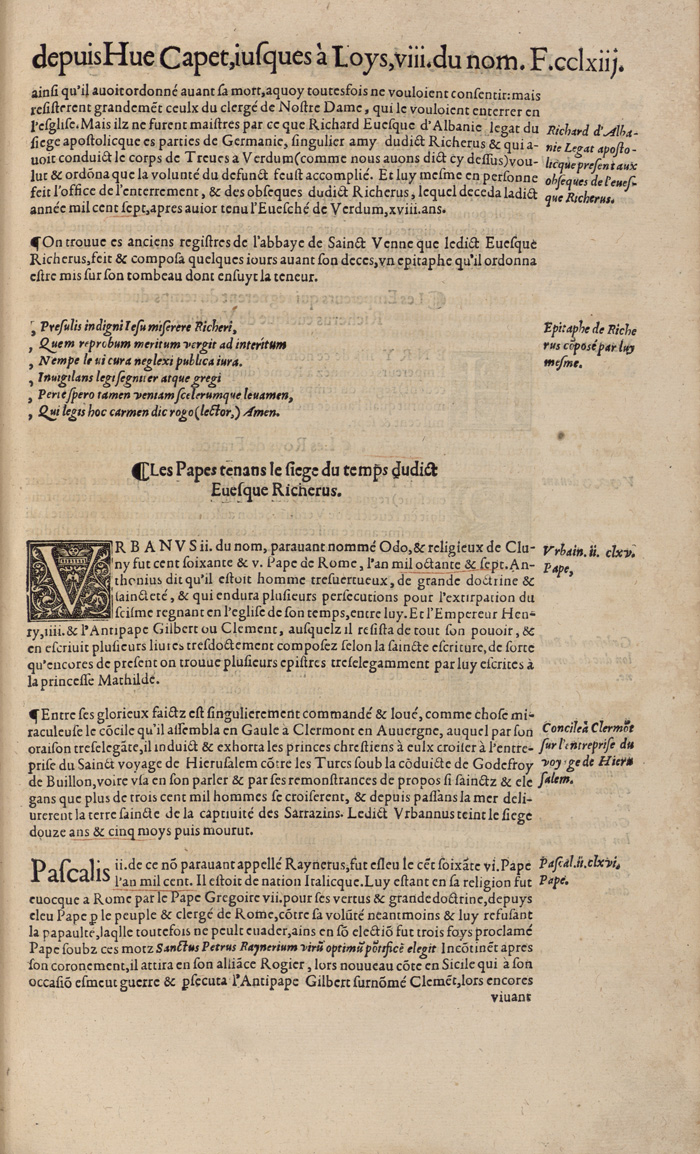 depuis Hue Capet,iuſques à Loys,viii.du nom. F.cclxiij.
ainſi qu'il auoit ordonné auant ſa mort,aquoy toutesfois ne vouloient conſentir:mais
reſiſterent grandemẽt ceulx du clergé de Noſtre Dame, qui le vouloient enterrer en
l'eſgliſe.Mais ilz ne furent maiſtres par ce que Richard Eueſque d'Albanie legat du
ſiege apoſtolicque es parties de Germanie, ſingulier amy dudict Richerus & qui a-
uoit conduict le corps de Treues a Verdum(comme nous auons dict cy deſſus)vou-
lut & ordõna que la volunté du defunct feuſt accomplié. Et luy meſme en perſonne
feit l'office de l'enterrement, & des obſeques dudict Richerus, lequel deceda ladict
année mil cent ſept,apres auior tenu l'Eueſché de Verdum,xviii.ans.
Richard d'Alba-
nie Legat apoſto-
licque preſent aux
obſeques de l'eueſ-
que Richerus.
¶On trouue es anciens regiſtres de l'abbaye de Sainct Venne que ledict Eueſque
Richerus,feit & compoſa quelques iours auant ſon deces,vn epitaphe qu'il ordonna
eſtre mis ſur ſon tombeau dont enſuyt la teneur.
, Preſulis indigni Ieſu miſerere Richeri,
, Quem reprobum meritum vergit ad interitum
, Nempe leui cura neglexi publica iura.
, Inuigilans legi ſegniter atque gregi
, Per te ſpero tamen veniam ſcelerumque leuamen,
, Qui legis hoc carmen dic rogo(lector,) Amen.
Epitaphe de Riche
rus cõpoſé par luy
meſme.
¶Les Papes tenans le ſiege du temps dudict
Eueſque Richerus.
VRBANVS ii. du nom, parauant nommé Odo,& religieux de Clu-
ny fut cent ſoixante & v. Pape de Rome, l'an mil octante & ſept.An-
thonius dit qu'il eſtoit homme treſuertueux, de grande doctrine &
ſaincteté, & qui endura pluſieurs perſecutions pour l'extirpation du
ſciſme regnant en l'egliſe de ſon temps,entre luy.Et l'Empereur Hen-
ry,iiii.& l'Antipape Gilbert ou Clement, auſquelz il reſiſta de tout ſon pouoir, &
en eſcriuit pluſieurs liures treſdoctement compoſez ſelon la ſaincte eſcriture,de ſorte
qu'encores de preſent on trouue pluſieurs epiſtres treſelegamment par luy eſcrites à
la princeſſe Mathilde.
Vrbain.ii. clxv.
Pape,
¶Entre ſes glorieux faictz eſt ſingulierement commandé & loué, comme choſe mi-
raculeuſe le cõcile qu'il aſſembla en Gaule à Clermont en Auuergne, auquel par ſon
oraiſon treſelegãte,il induict & exhorta les princes chreſtiens à eulx croiſer à l'entre-
priſe du Sainct voyage de Hieruſalem cõtre les Turcs ſoub la cõduicte de Godefroy
de Buillon,voire vſa en ſon parler & par ſes remonſtrances de propos ſi ſainctz & ele
gans que plus de trois cent mil hommes ſe croiſerent, & depuis paſſans la mer deli-
urerent la terre ſaincte de la captiuité des Sarrazins. Ledict Vrbannus teint le ſiege
douze ans & cinq moys puis mourut.
Concile à Clermõt
ſur l'entrepriſe du
voyage de Hieru
ſalem.
Paſcalis ii.de ce nõ parauant appellé Raynerus,fut eſleu le cẽt ſoixãte vi.Pape
l'an mil cent. Il eſtoit de nation Italicque.Luy eſtant en ſa religion fut
euocque a Rome par le Pape Gregoire vii.pour ſes vertus & grande doctrine,depuys
eleu Pape p le peuple & clergé de Rome,cõtre ſa volũté neantmoins & luy refuſant
la papaulté,laqlle toutefois ne peult euader,ains en ſõ electiõ fut trois foys proclamé
Pape ſoubz ces motz Sanctus Petrus Raynerium virũ optimũ põtificẽ elegit Incõtinẽt apres
ſon coronement,il attira en ſon alliãce Rogier, lors nouueau cõte en Sicile qui à ſon
occaſiõ eſmeut guerre & pſecuta l'Antipape Gilbert ſurnõmé Clemẽt,lors encores
viuant
Paſcal.ii.clxvi.
Pape.